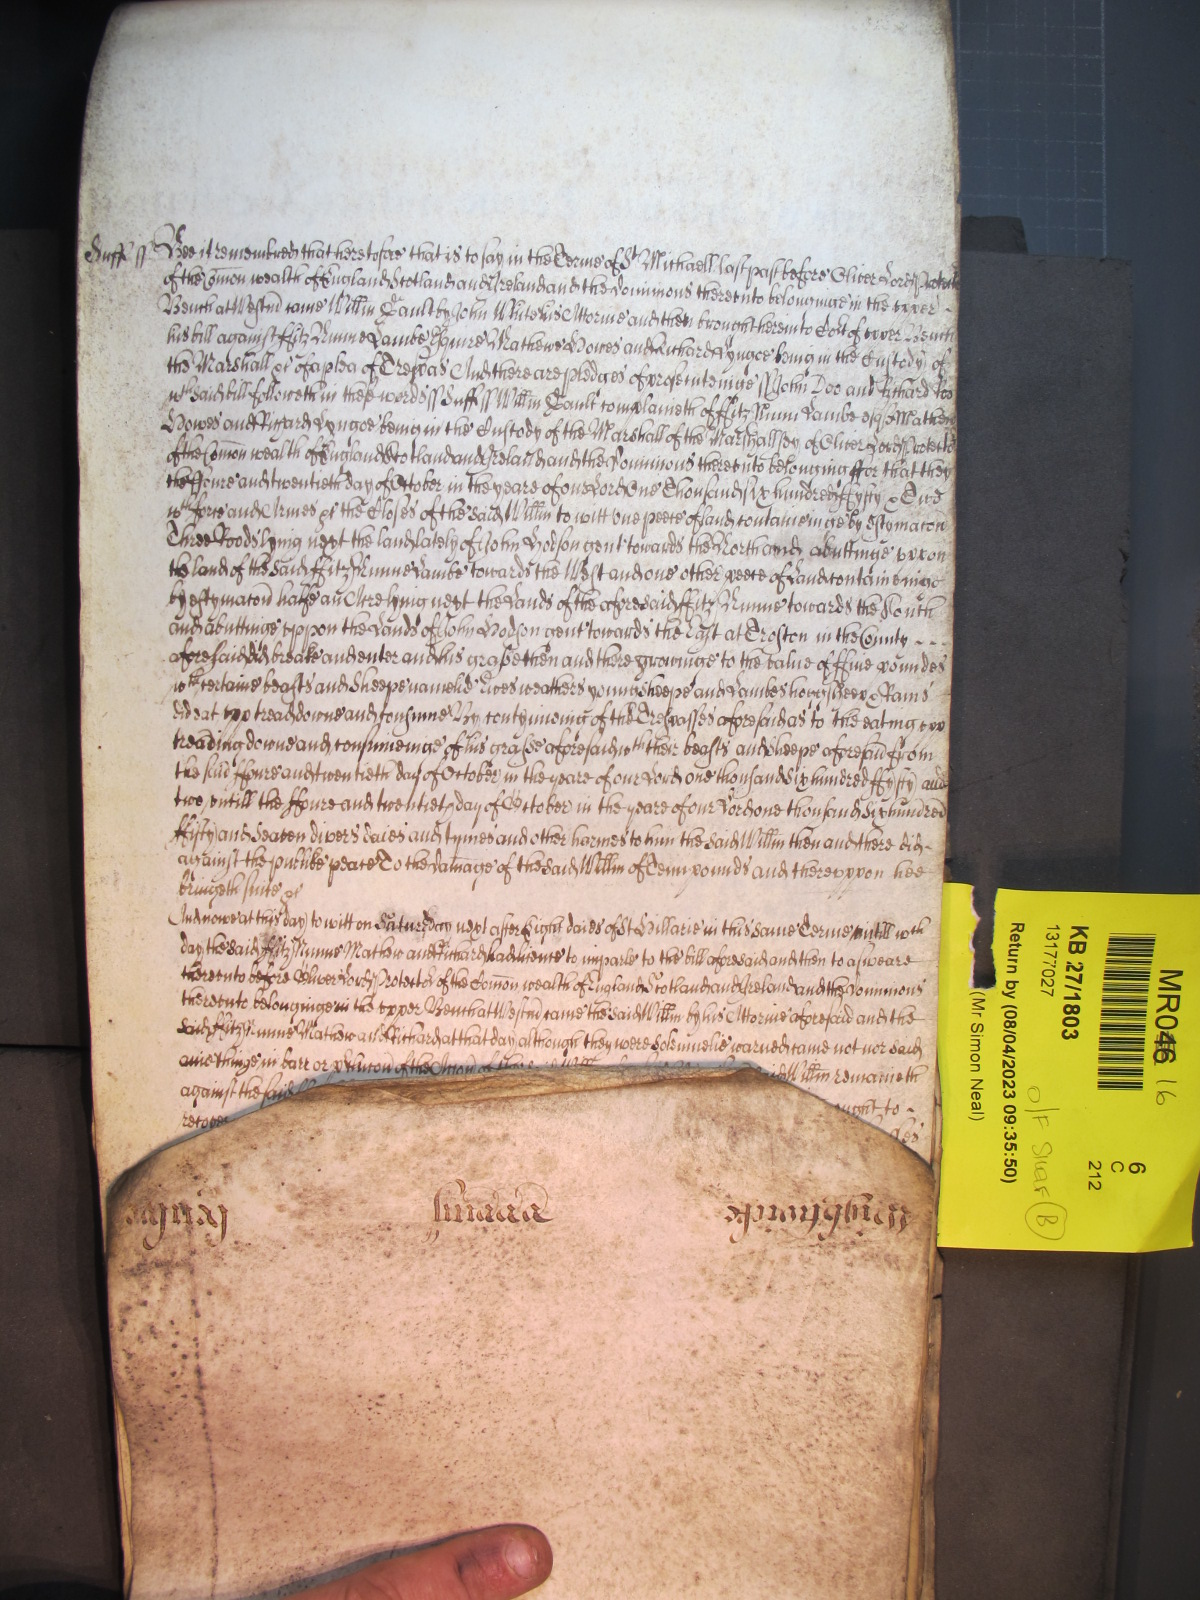 Suff ss Bee it remembred that heretofore that is to say in the Terme of St Michaell last past before Oliver Lord Protector
of the Comon wealth of England Scotland and Ireland and the Dominions thereunto belonginge in the upper
Bench at Westm came Willm Cault by John White his Attorne and then brought here into Court of upper Bench
his bill against ffitz Nunne Lambe Esquire Mathewe Howes and Richard Lyngoe being in the Custody of
the Marshall &c of a plea of Trespas And there are pledges of prosecuteinge ss John Doo and Richard Roo
wch said bill followeth in these words ss Suff ss Willm Cault complaineth of ffitz Nunn Lambe esqr Mathew
Howes and Richard Lyngoe being in the Custody of the Marshall of the Marshallsey of Oliver Lord Protector
of the Comon wealth of England Scotland and Ireland and the Dominions thereunto belonging ffor that they
the ffoure and twentieth day of October in the yeare of our Lord One Thousand six hundred ffyfty & Two
wth force and Armes &c the Closes of the said Willm to witt one peece of land containeinge by estymacon
Three Roods lying next the land lately of John Hodson gent towards the North and abuttinge uppon
the land of the said ffitz Nunne Lambe towards the West and one other peece of Land containeinge
by estymacon halfe an Acre lying next the Lands of the aforesaid ffitz Nunne towards the South
and abuttinge uppon the Lands of John Hodson gent towards the East at Troston in the County
aforesaid did breake and enter and his grasse then and there growinge to the value of ffive poundes
wth certaine beasts and Sheepe namelie Ewes weathers young sheepe and Lambes hoggs sheep & Rams
did eat upp tread downe and consume By contynueing of the Trespasses aforesaid as to the eating upp
treading downe and consumeinge of his grasse aforesaid wth their beasts and sheepe aforesaid from
the said ffoure and twentieth day of October in the yeare of our Lord one thousand six hundred ffyfty and
two untill the ffoure and twentieth day of October in the yeare of our Lord one thousand Six hundred
ffifty and Seaven divers daies and tymes and other harmes to him the said Willm then and there did
against the publike peace To the damage of the said Willm of Tenn pounds and thereuppon hee
bringeth suite &c
And nowe at this day to witt on Saturday next after Eight daies of St Hillarie in this same Terme untill wch
day the said ffitz Nunne Mathew and Richard had licence to imparle to the bill aforesaid and then to answeare
thereunto before Oliver Lord Protector of the Comon wealth of England Scotland and Ireland and the Dominions
thereunto belonginge in the upper Bench at Westm came the said Willm by his Attorne aforesaid and the
said ffitz Nunne Mathew and Richard at that day although they were Solemnelie warned came not nor said
anie thinge in barr or of the Accon of the said Willm remaineth
against the said ought to
recover
MR046 16
6
C
212
KB 27/1803
13177027
Return by (08/04/2023 09:35:50)
(Mr Simon Neal)
O/F Shar B